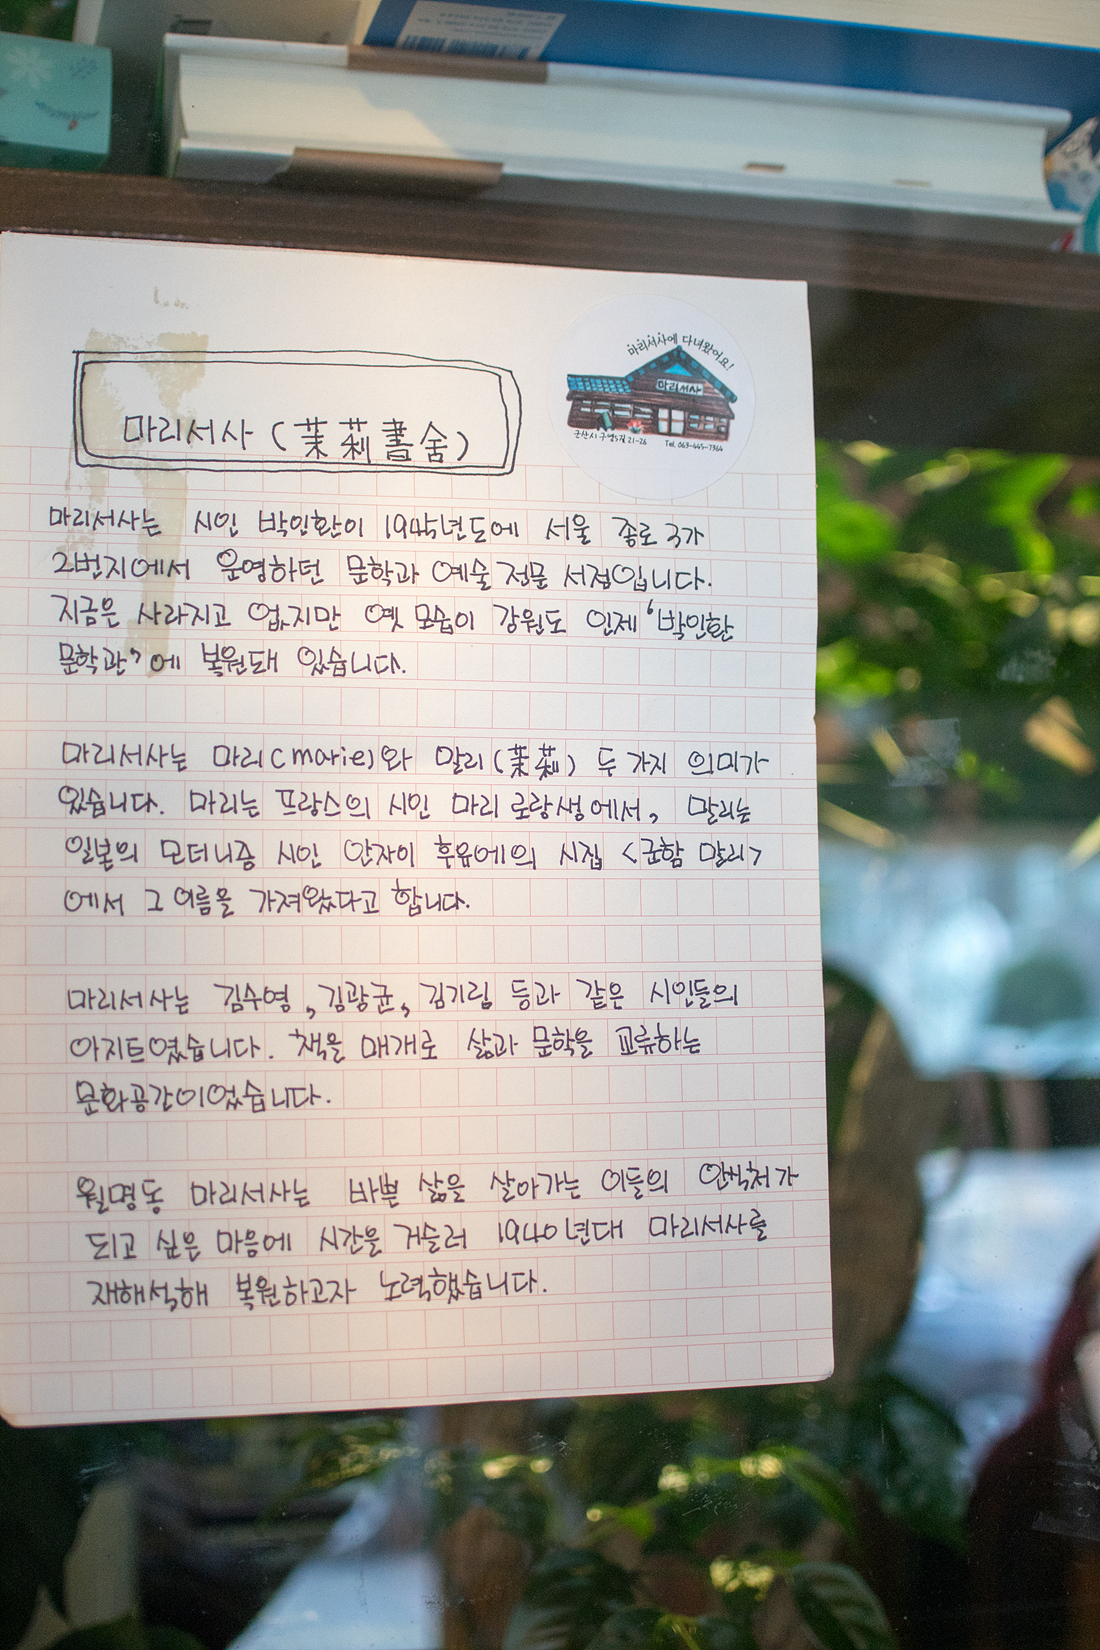 마리서사에 다녀왔어요!
마리서사
군산시 구영5길 21-26 Tel. 063-445-7364
마리서사 (茉莉書舍)
마리서사는 시인 박인환이 1945년도에 서울 종로 3가
2번지에서 운영하던 문학과 예술 전문 서점입니다.
지금은 사라지고 없지만 옛 모습이 강원도 인제 '박인환
문학관'에 복원돼 있습니다.
마리서사는 마리(marie)와 말리(茉莉) 두 가지 의미가
있습니다. 마리는 프랑스의 시인 마리 로랑생에서, 말리는
일본의 모더니즘 시인 안자이 후유에의 시집 <군함 말리>
에서 그 이름을 가져왔다고 합니다.
마리서사는 김수영, 김광균, 김기림 등과 같은 시인들의
아지트였습니다. 책을 매개로 삶과 문학을 교류하는
문화공간이었습니다.
월명동 마리서사는 바쁜 삶을 살아가는 이들의 안식처가
되고 싶은 마음에 시간을 거슬러 1940년대 마리서사를
재해석해 복원하고자 노력했습니다.